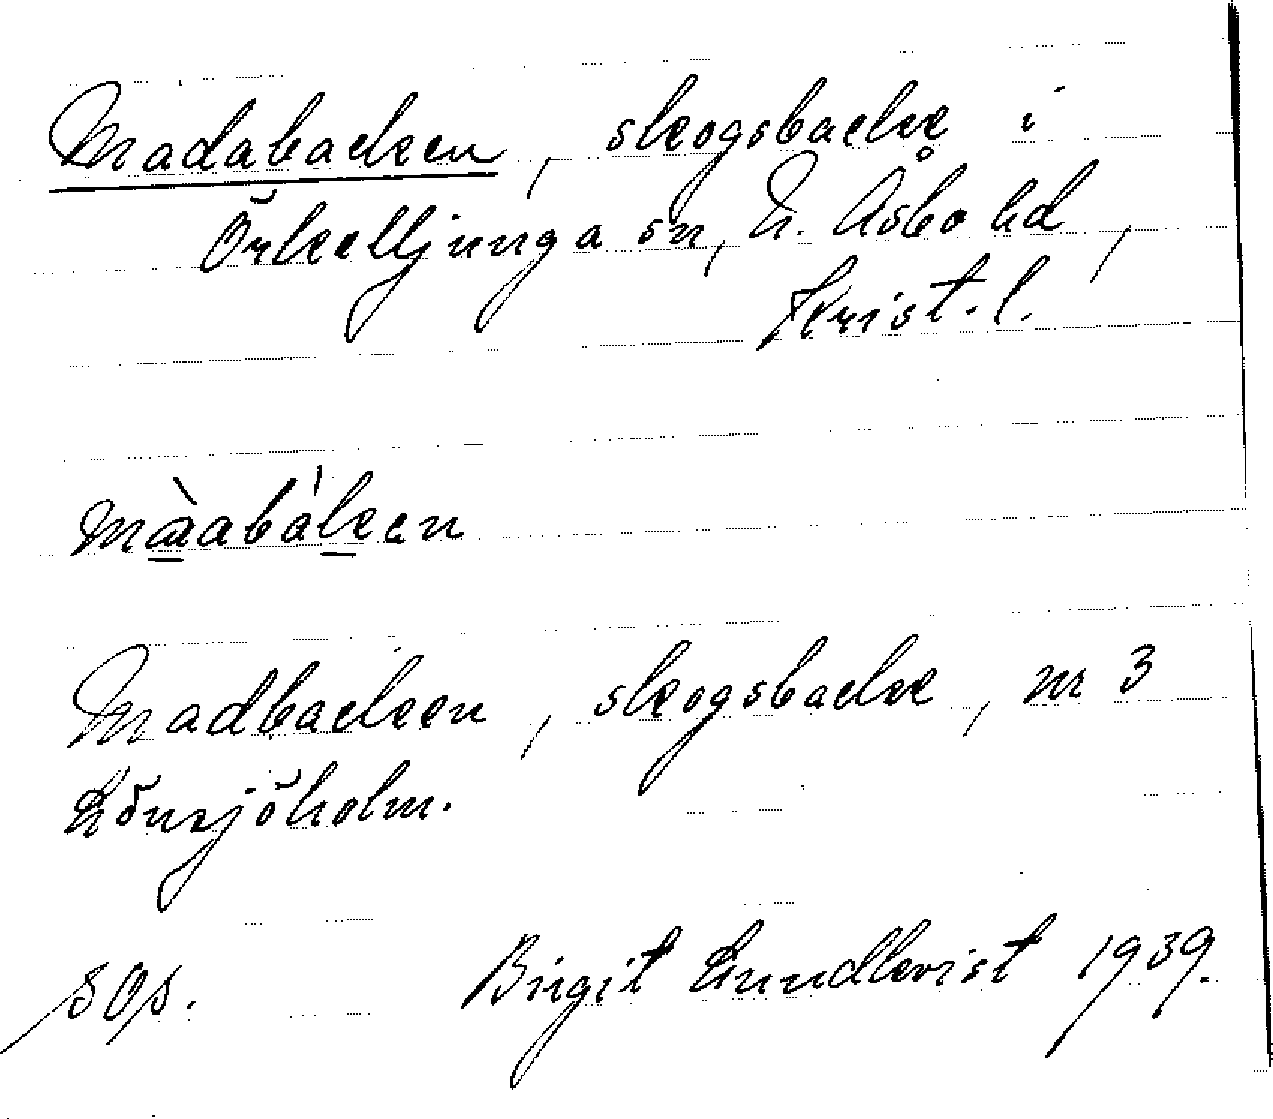 Madabacken, skogsbacke i
Örkelljunga sn, N. Åsbo hd,
Krist. l.
màabácken
Madbacken, skogsbacke, nr 3
Lönsjöholm.
SOS. Birgit Lundkvist 1939.